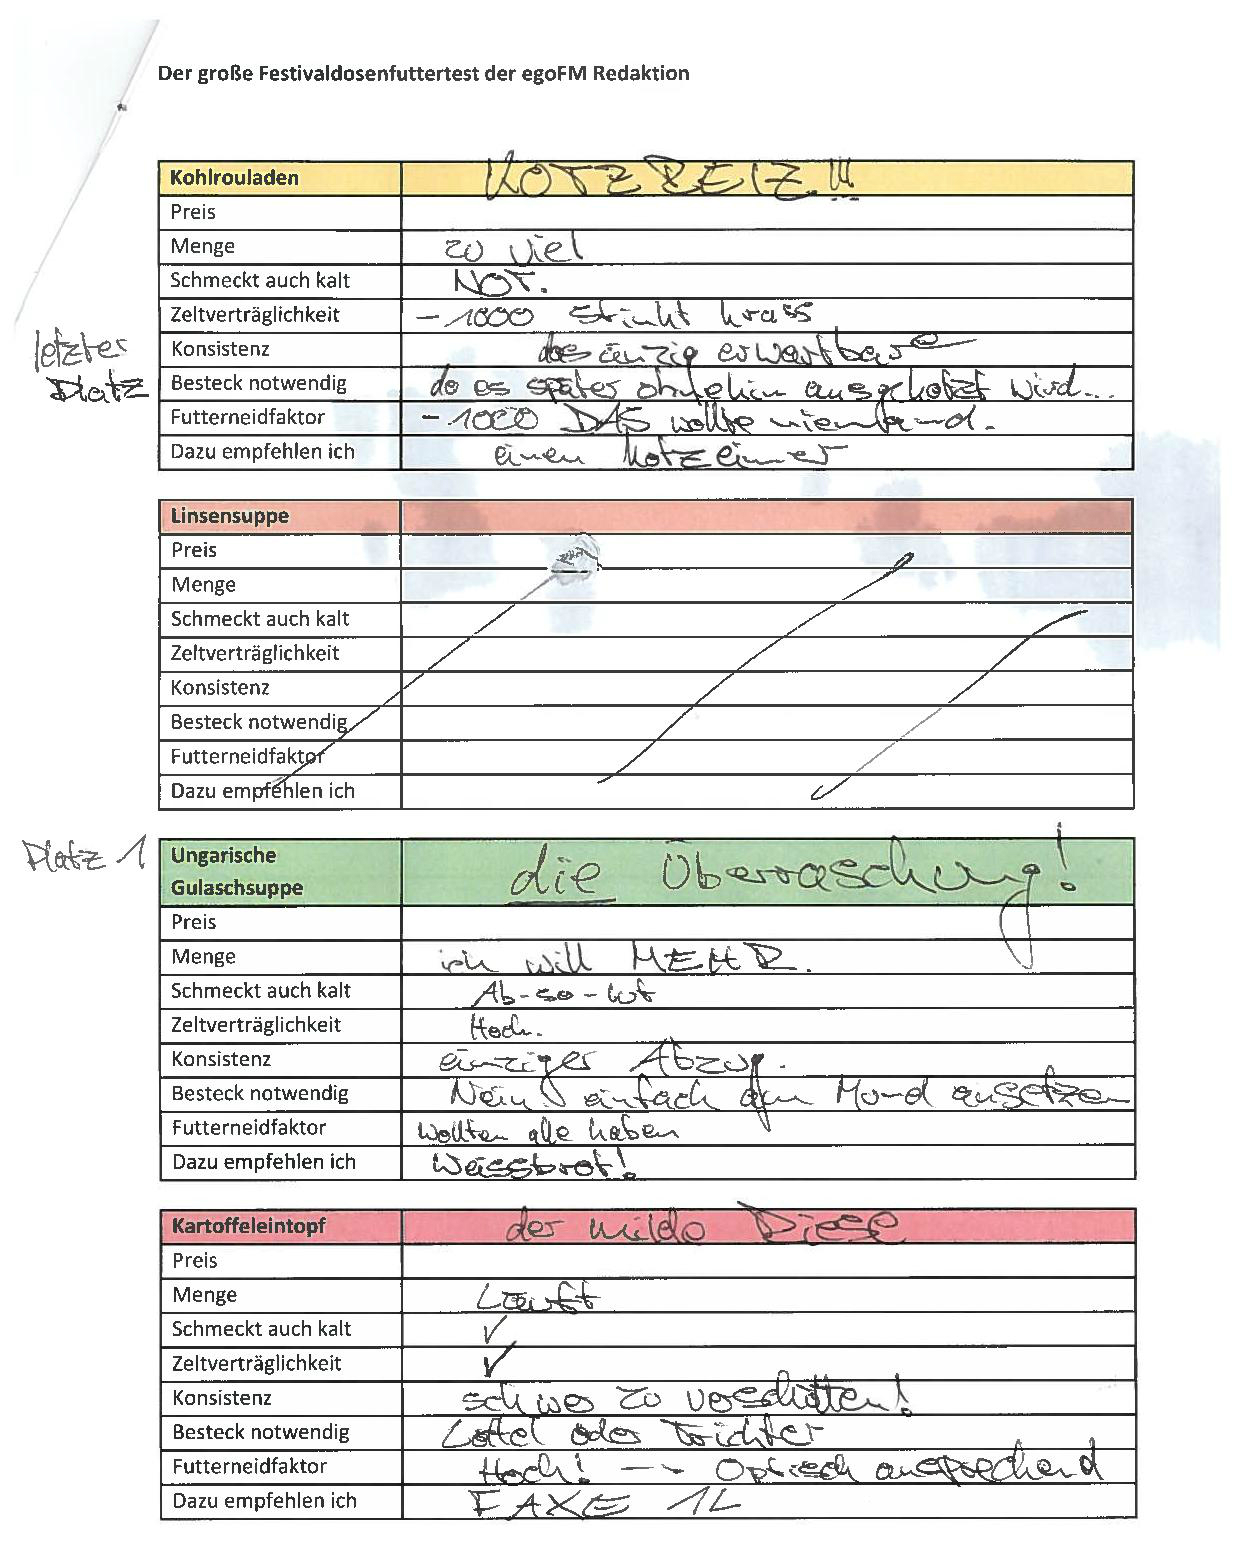 Der große Festivaldosenfuttertest der egoFM Redaktion
Kohlrouladen KOTZREIZ!!!
Preis
Menge zu viel
Schmeckt auch kalt NOT.
Zeltverträglichkeit -1000 stinkt krass
letzter Platz
Konsistenz das einzig erwartbare
Besteck notwendig da es später ohnehin ausgekotzt wird...
Futterneidfaktor -1000 DAS wollte niemand.
Dazu empfehlen ich einen Kotzeimer
Linsensuppe
Preis
Menge
Schmeckt auch kalt
Zeltverträglichkeit
Konsistenz
Besteck notwendig
Futterneidfaktor
Dazu empfehlen ich
Platz 1
Ungarische Gulaschsuppe die Überraschung!
Preis
Menge ich will MEHR.
Schmeckt auch kalt Ab-so-lut
Zeltverträglichkeit Hoch.
Konsistenz einziger Abzug.
Besteck notwendig Nein! einfach am Mund ansetzen
Futterneidfaktor Wollten alle haben
Dazu empfehlen ich Weissbrot!
Kartoffeleintopf der milde Riese
Preis
Menge Läuft
Schmeckt auch kalt ✓
Zeltverträglichkeit ✓
Konsistenz schwer zu verschütten!
Besteck notwendig Löffel oder Trichter
Futterneidfaktor Hoch! → Optisch ansprechend
Dazu empfehlen ich FAXE 1L